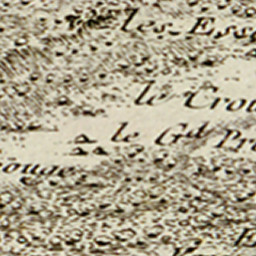 les Ess
le Crou
le Gd Pr
ouge